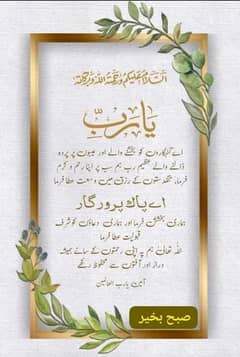 السلام علیکم ورحمۃ اللہ وبرکاتہ
یا ربّ
اے گنہگاروں کو بخشنے والے اور عیبوں پر پردہ
ڈالنے والے عظیم رب ہم سب پر اپنا رحم و کرم
فرما، تنگدستوں کے رزق میں وسعت عطا فرما
اے پاک پروردگار
ہماری بخشش فرما اور ہماری دعاؤں کو شرف
قبولیت عطا فرما
اللہ تعالیٰ ہم پہ اپنی رحمتوں کے سائے ہمیشہ
دراز اور آفتوں سے محفوظ رکھے
آمین یارب العالمین
صبح بخیر